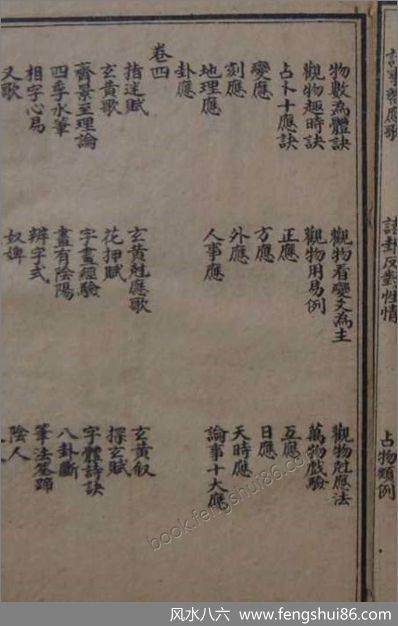 諸卦反對性情 占物類例
物數為體訣 觀物看變爻為主 觀物尅應法
觀物趣時訣 觀物用易例 萬物戲驗
占卜十應訣 正應 互應
變應 方應 日應
刻應 外應 天時應
地理應 人事應 論事十大應
卦應
卷四
指迷賦 玄黃尅應歌 玄黃叙
玄黃歌 花押賦 探玄賦
齊景至理論 字畫經驗 字體詩訣
四季水筆 畫有陰陽 八卦斷
相字心易 辨字式 筆法筌蹄
又歌 奴婢 陰人
book.fengshui86.com
风水八六 www.fengshui86.com